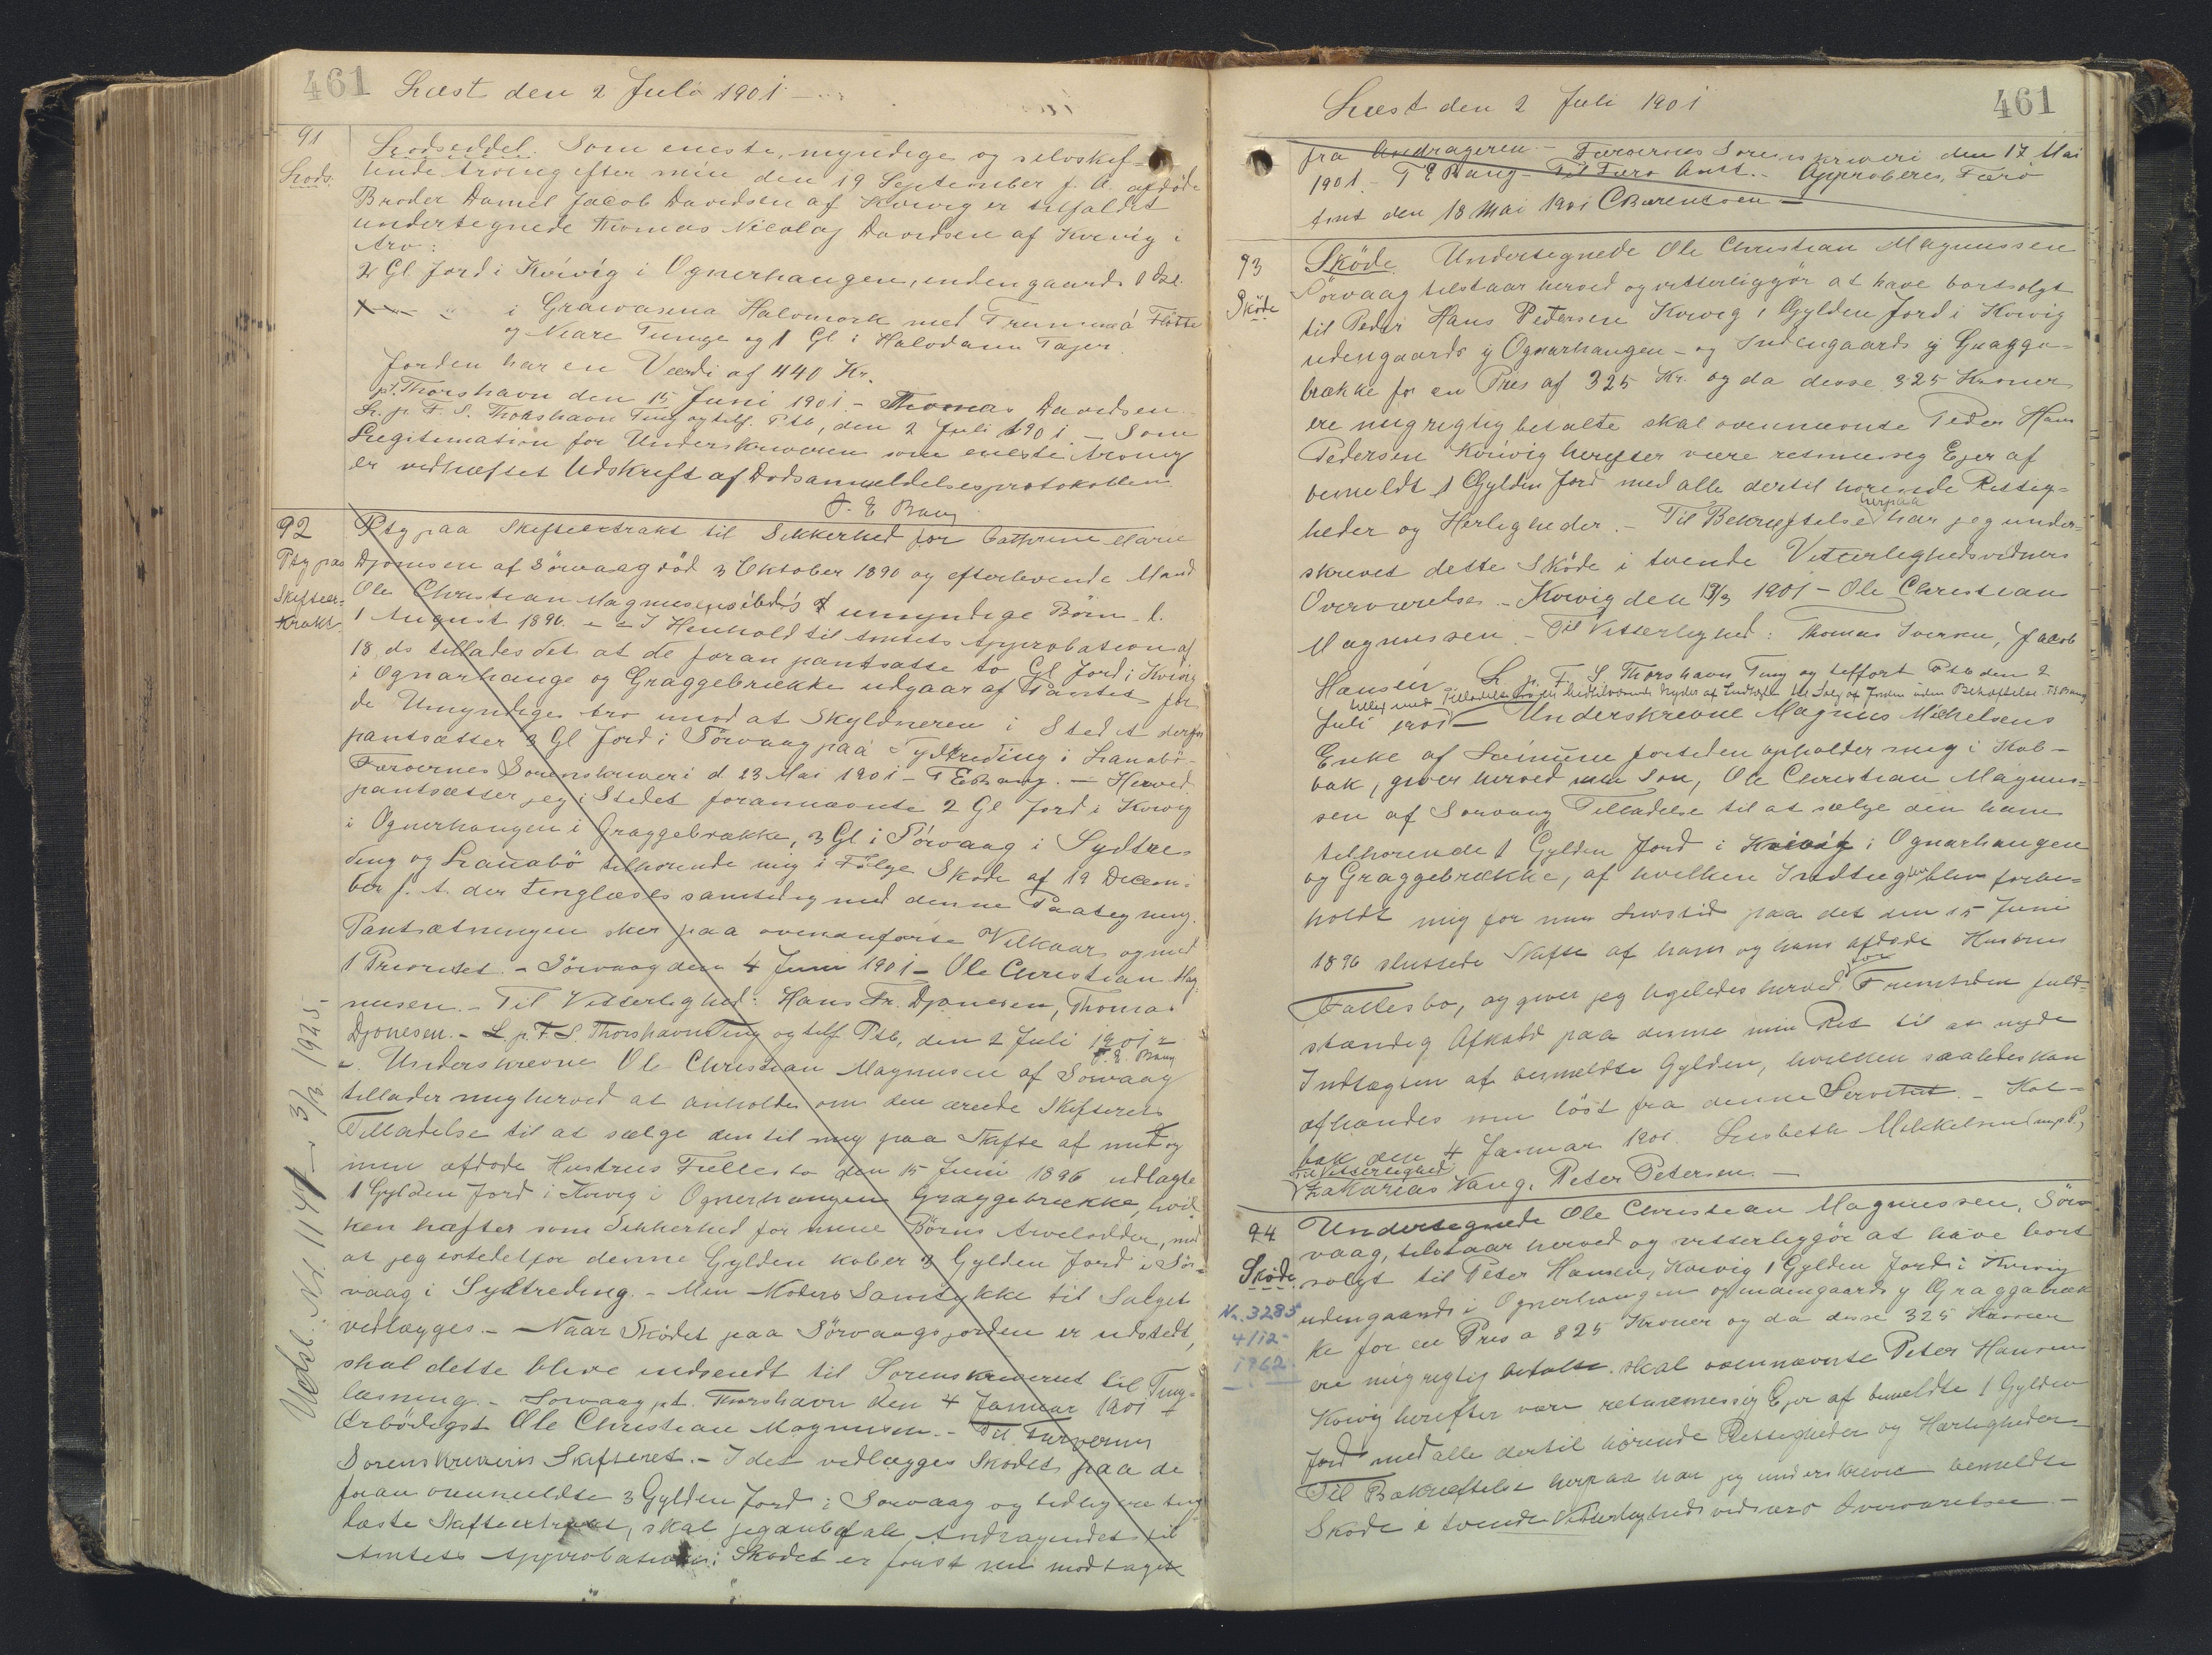 461 Læst den 2 Juli 1901 -
91
Lods.
Lodseddel. Som eneste, myndige og selvskif-
tende Arving efter min den 19 September f. A. afdöde
Broder Daniel Jacob Davidsen af Kvivig er tilfaldet
undertegnede Thomas Nicolaj Davidsen af Kvivig i
Arv:
2 Gl. Jord i Kvivig i Ognerhaugen, indengaards
i Gráwasena Halvmork med Trummá Flötte
og Neare Tunge og 1 Gl i Halvdanu Tajer.
Jorden har en Værdi af 440 Kr.
pt. Thorshavn den 15 Juni 1901 - Thomas Davidsen
L. p. F. S. Thorshavn Ting og tilf. Ptb, den 2 Juli 1901. - Som
Legitimation for Underskriveren som eneste Arving
er vedhæftet Udskrift af Dodsanmeldelsesprotokollen
T. E Bang
92
Ptg paa
Skifteex-
trakt
Ptg paa Skifteextrakt til Sikkerhed for Cathrine Marie
Djonesen af Sörvaag död 3 Oktober 1890 og efterlevende Mand
Ole Christian Magnussens umyndige Börn - l.
1 August 1896. - I Henhold til Amtets Approbation af
18 ds tillades det at de foran pantsatte to Gl Jord i Kvivig
i Ognarhauge og Graggebrække udgaar af Pantet for
de Umyndiges Arv imod at Skyldneren i Stedet derfor
pantsætter 3 Gl Jord i Sörvaag paa Sydtreding i Lanabö -
Færoernes Sorenskriveri d. 23 Mai 1901 - T E Bang. - Herved
pantsætter jeg i Stedet forannævnte 2 Gl Jord i Kvivig
i Ognerhaugen i Graggebrække, 3 Gl i Sörvaag i Sydtre-
ding og Lanabö tilhorende mig i Fölge Skode af 19 Decem-
ber f. A. der tinglæses samtidig med denne Paategning.
Pantsætningen sker paa ovenanförte Vilkaar og med
1 Prioritet. - Sörvaag den 4 Juni 1901 - Ole Christian Mag-
nusen. - Til Vitterlighed: Hans Fr. Djonesen, Thomas
Djonesen. - L. p. F. S. Thorshavn Ting og tilf Ptb, den 2 Juli 1901 -
T. E. Bang
Underskrevne Ole Christian Magnusen af Sorvaag
tillader mig herved at anholde om den ærede Skifterets
Tilladelse til at sælge den til mig paa Skifte af mit og
min afdode Hustrus Fællesbo den 15 Juni 1896 udlagte
1 Gylden Jord i Kvivig i Ognerhaugen Graggebrække, hvil-
ken hæfter som Sikkerhed for mine Börns Arvelodder, mod
at jeg istedetfor denne Gylden kober 3 Gylden Jord i Sör-
vaag i Sydtreding. - Min Moders Samtykke til Salget
vedlægges. - Naar Sködet paa Sörvaagsjorden er udstedt,
skal dette blive indsendt til Sorenskriveriet til Ting-
læsning. - Sorvaag pt. Thorshavn den 4 Januar 1901 -
Ærbödigst Ole Christian Magnusen. - Til Færoernes
Sorenskriveris Skifteret. - I det vedlægges Skodet paa de
foran ommeldte 3 Gylden Jord i Sorvaag og tidligere ting-
læste Skifteextrakt, skal jeg anbefale Andragendet til
Amtets Approbation; Skodet er først nu modtaget
Udsl. Nr. 1141 - 3/3 1925 -
Læst den 2 Juli 1901 461
fra Andrageren - Færoernes Sorenskriveri den 17 Mai
1901. - T E Bang - Til Færo Amt. - Approberes, Færo
Amt den 18 Mai 1901 C Bærentsen -
93
Sköde
Sköde. Undertegnede Ole Christian Magnussen
Sörvaag tilstaar herved og vitterliggör at have bortsolgt
til Peder Hans Petersen Kvivig 1 Gylden Jord i Kvivig
udengaards y Ognarhaugen - og Indengaards y Gragga-
brække for en Pris af 325 Kr. og da disse 325 Kroner
ere mig rigtig betalte skal ovennævnte Peder Hans
Pedersen Kvivig herefter være retmæssig Ejer af
bemeldt 1 Gylden Jord med alle dertil horende Rettig-
heder og Herligheder. - Til Bekræftelse herpaa har jeg under-
skrevet dette Sköde i tvende Vitterlighedsvidners
Overværelse. - Kvivig den 13/3 1901 - Ole Christian
Magnussen - Til Vitterlighed: Thomas Iversen, Jacob
Hansen L. p. F. S. Thorshavn Ting og tilfort Ptb den 2
Juli 1901 - Underskrevne Magnus Mikkelsens
Enke af fortiden opholder mig i Kol-
bak, giver herved min Son, Ole Christian Magnus-
sen af Sorvaag Tilladelse til at sælge den ham
tilhorende 1 Gylden Jord i Kvivig i Ognarhaugen
og Graggebrække, af hvilken Indtægten blev forbe-
holdt mig for min Livstid paa det den 15 Juni
1896 sluttede Skifte af hans og hans afdøde Hustrus
Fallesbo, og giver jeg ligeledes herved for Fremtiden fuld-
stændig Afkald paa denne min Ret til at nyde
Indtægten af bemeldte Gylden, hvilken saaledes kan
afhændes nu löst fra denne Servitut. - Kol-
bak den 4 Januar 1901. Lisbeth Mikkelsen m. p. P.,
Til Vitterlighed:
Zakarias Vang, Peter Petersen. -
94
Sköde
Nr. 3285
4/12-
1962
Undertegnede Ole Christian Magnussen, Sör-
vaag, tilstaar herved og vitterliggör at have bort
solgt til Peter Hansen, Kvivig 1 Gylden Jord i Kvivig
udengaards i Ognerhaugen og indengaards y Graggabræk
ke for en Pris a 325 Kroner og da disse 325 Kroner
ere mig rigtig betalte, skal ovennævnte Peter Hansen
Kvivig herefter være retsmæssig Ejer af bemeldte 1 Gylden
Jord med alle dertil hörende Rettigheder og Herligheder
Til Bekræftelse herpaa har jeg underskrevet bemeldte
Skode i tvende Vitterlighedsvidners Overværelse. -